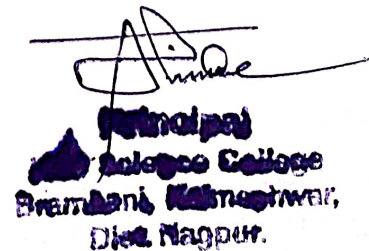 Principal
Science College
Bramhani, Kalmeshwar,
Dist. Nagpur.